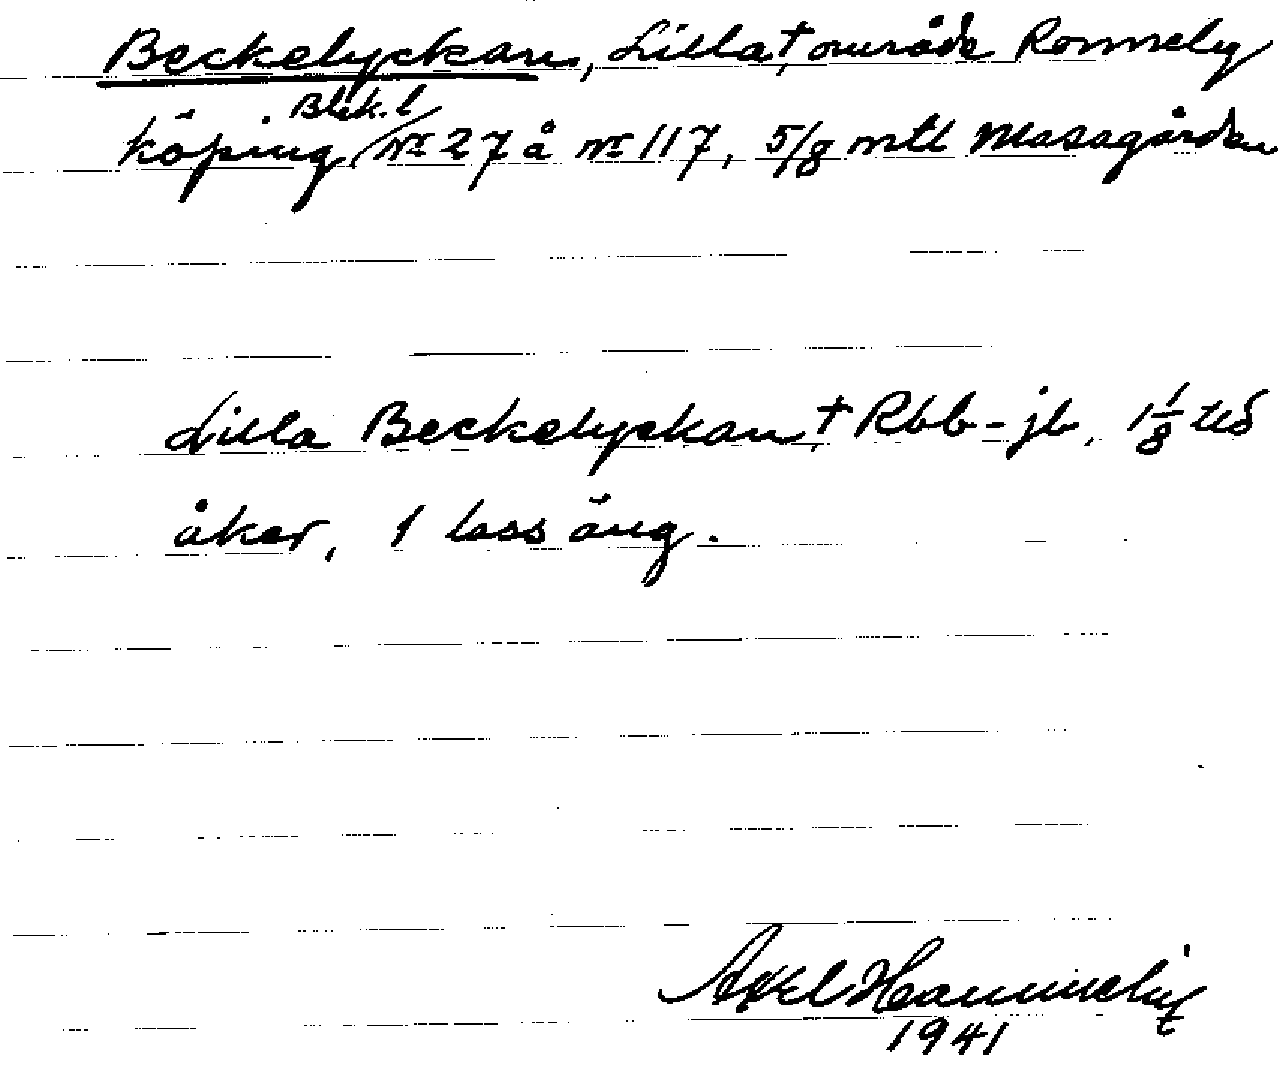 Beckelyckan, Lilla †, område Ronneby
Blek. l
köping Nr 27 å nr 117, 5/8 mtl Massagården
Lilla Beckelyckan †, Rbb-jb, 1 1/8 tld
åker, 1 lass äng.
Axel
1941